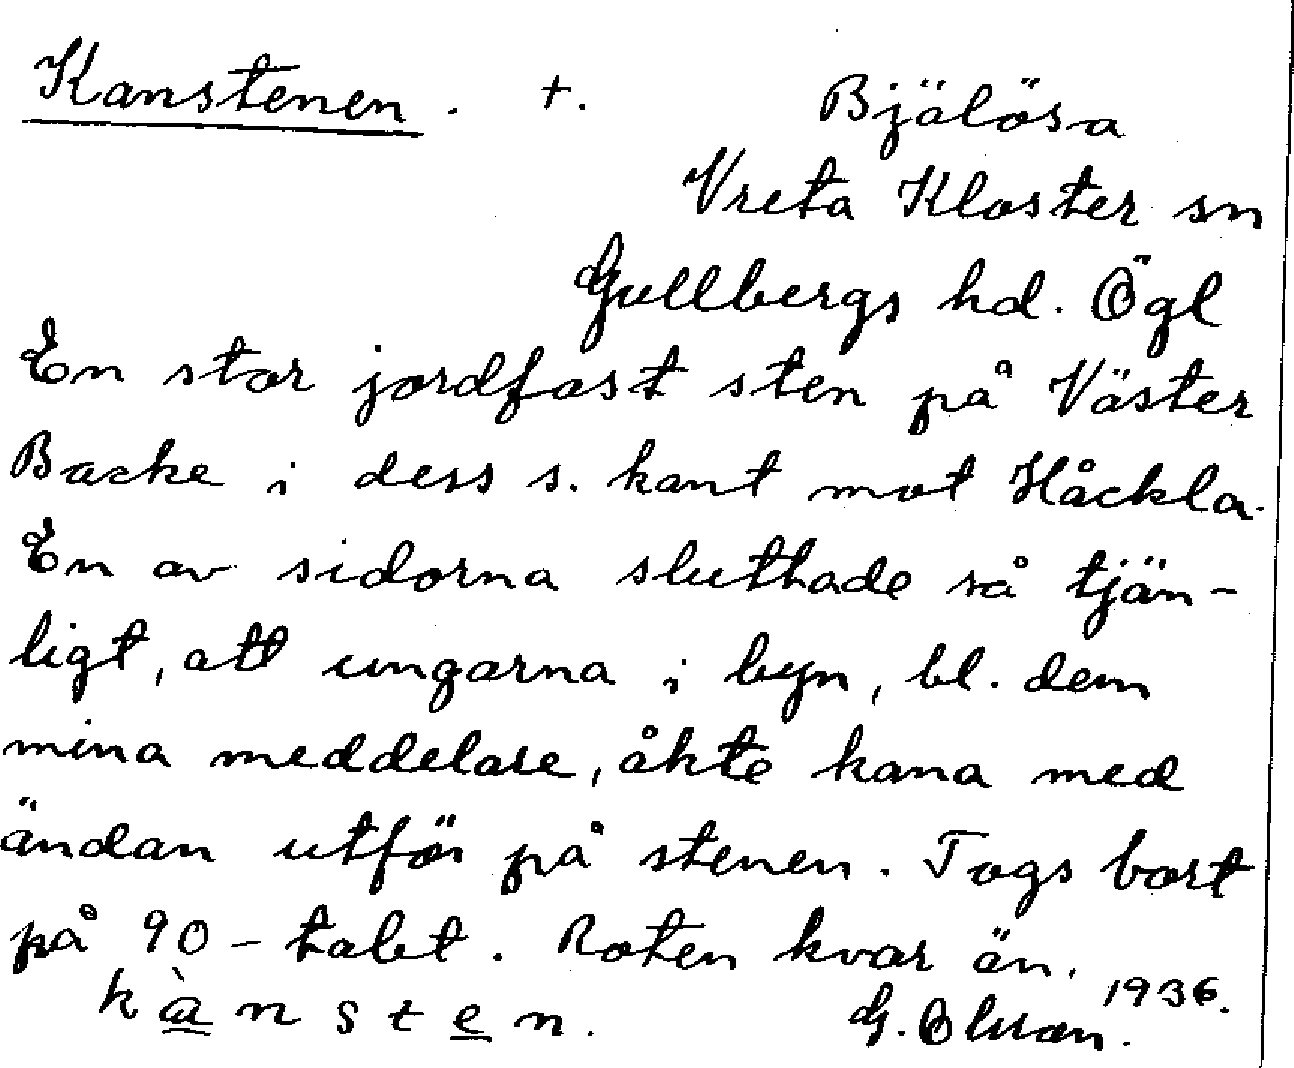 Kanstenen. +. Bjälösa
Vreta Kloster sn
Gullbergs hd. Ögl
En stor jordfast sten på Väster
Backe i dess s. kant mot Håckla.
En av sidorna sluttade så tjän-
ligt, att ungarna i byn, bl. dem
mina meddelare, åkte kana med
ändan utför på stenen. Togs bort
på 90-talet. Roten kvar än.
kànsten. G. Olsson. 1936.